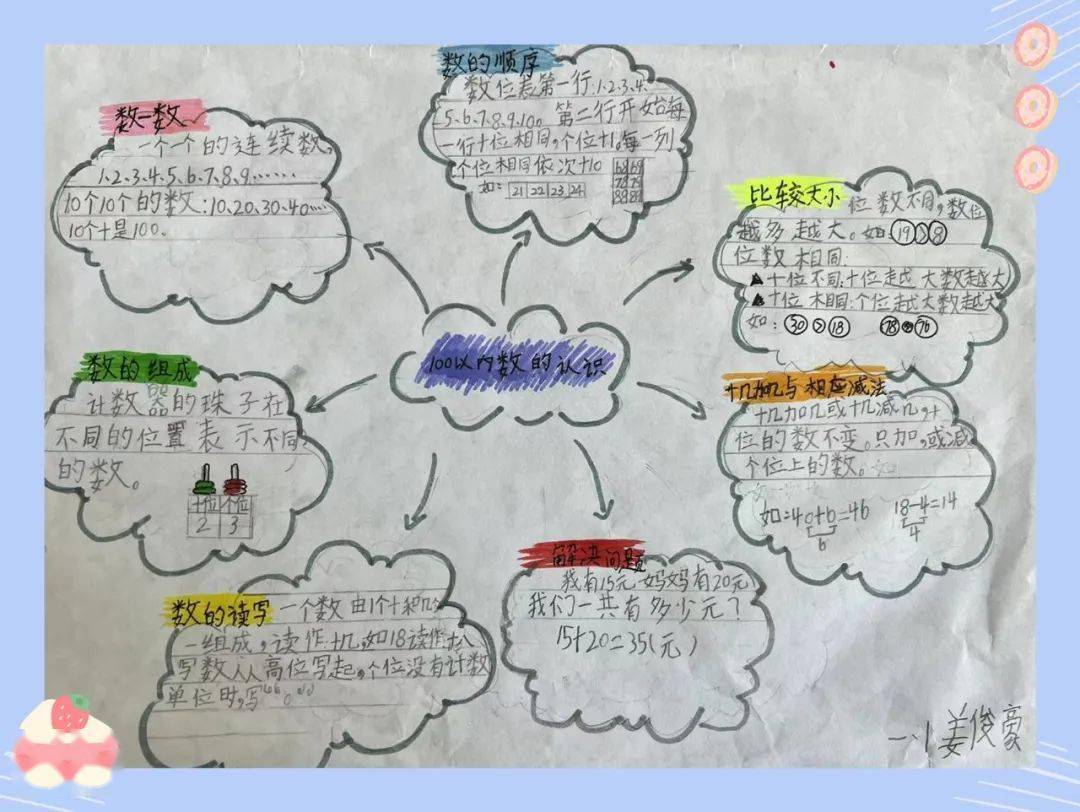 100以内数的认识
数一数
一个一个的连续数,
1、2、3、4、5、6、7、8、9、……
10个10个的数:10、20、30、40…
10个十是100、
数的顺序
数位表第一行、1、2、3、4、
5、6、7、8、9、10。第二行开始每
一行十位相同,个位+1。每一列
个位相同依次+10
如: 21 22 23 24
68 69
78 79
88 89
比较大小
位数不同,数位
越多越大。如:19>8
位数相同:
▲十位不同:十位越大数越大
▲十位相同:个位越大数越大
如: 30>18 78>76
十几加几与相应减法
十几加几或十几减几,十
位的数不变。只加,或减
个位上的数。
如:40+6=46 18-4=14
6 4
解决问题
我有15元 妈妈有20元
我们一共有多少元?
15+20=35(元)
数的读写
一个数由1个十和几
一组成,读作十几,如18读作十八
写数从高位写起,个位没有计数
单位时,写“0”
数的组成
计数器的珠子在
不同的位置表示不同
的数。
十位 个位
2 3
一、1 姜俊豪